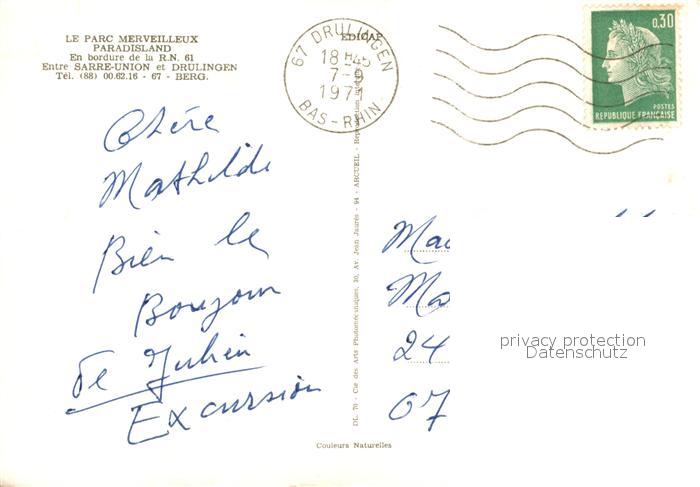 LE PARC MERVEILLEUX
PARADISLAND
En bordure de la R.N. 61
Entre SARRE-UNION et DRULINGEN
Tél. (88) 00.62.16 - 67 - BERG.
EDICAP
67 DRULINGEN
18H45
7-9
1971
BAS-RHIN
0,30
POSTES
REPUBLIQUE FRANÇAISE
Chére
Mathilde
Bien le
Boujour
de Julien
Excursion
24
07
privacy protection
Datenschutz
DL. 70 - Cie des Arts Photomécaniques, 30, Av. Jean Jaurès - 94 - ARCUEIL - Reproduction
Couleurs Naturelles